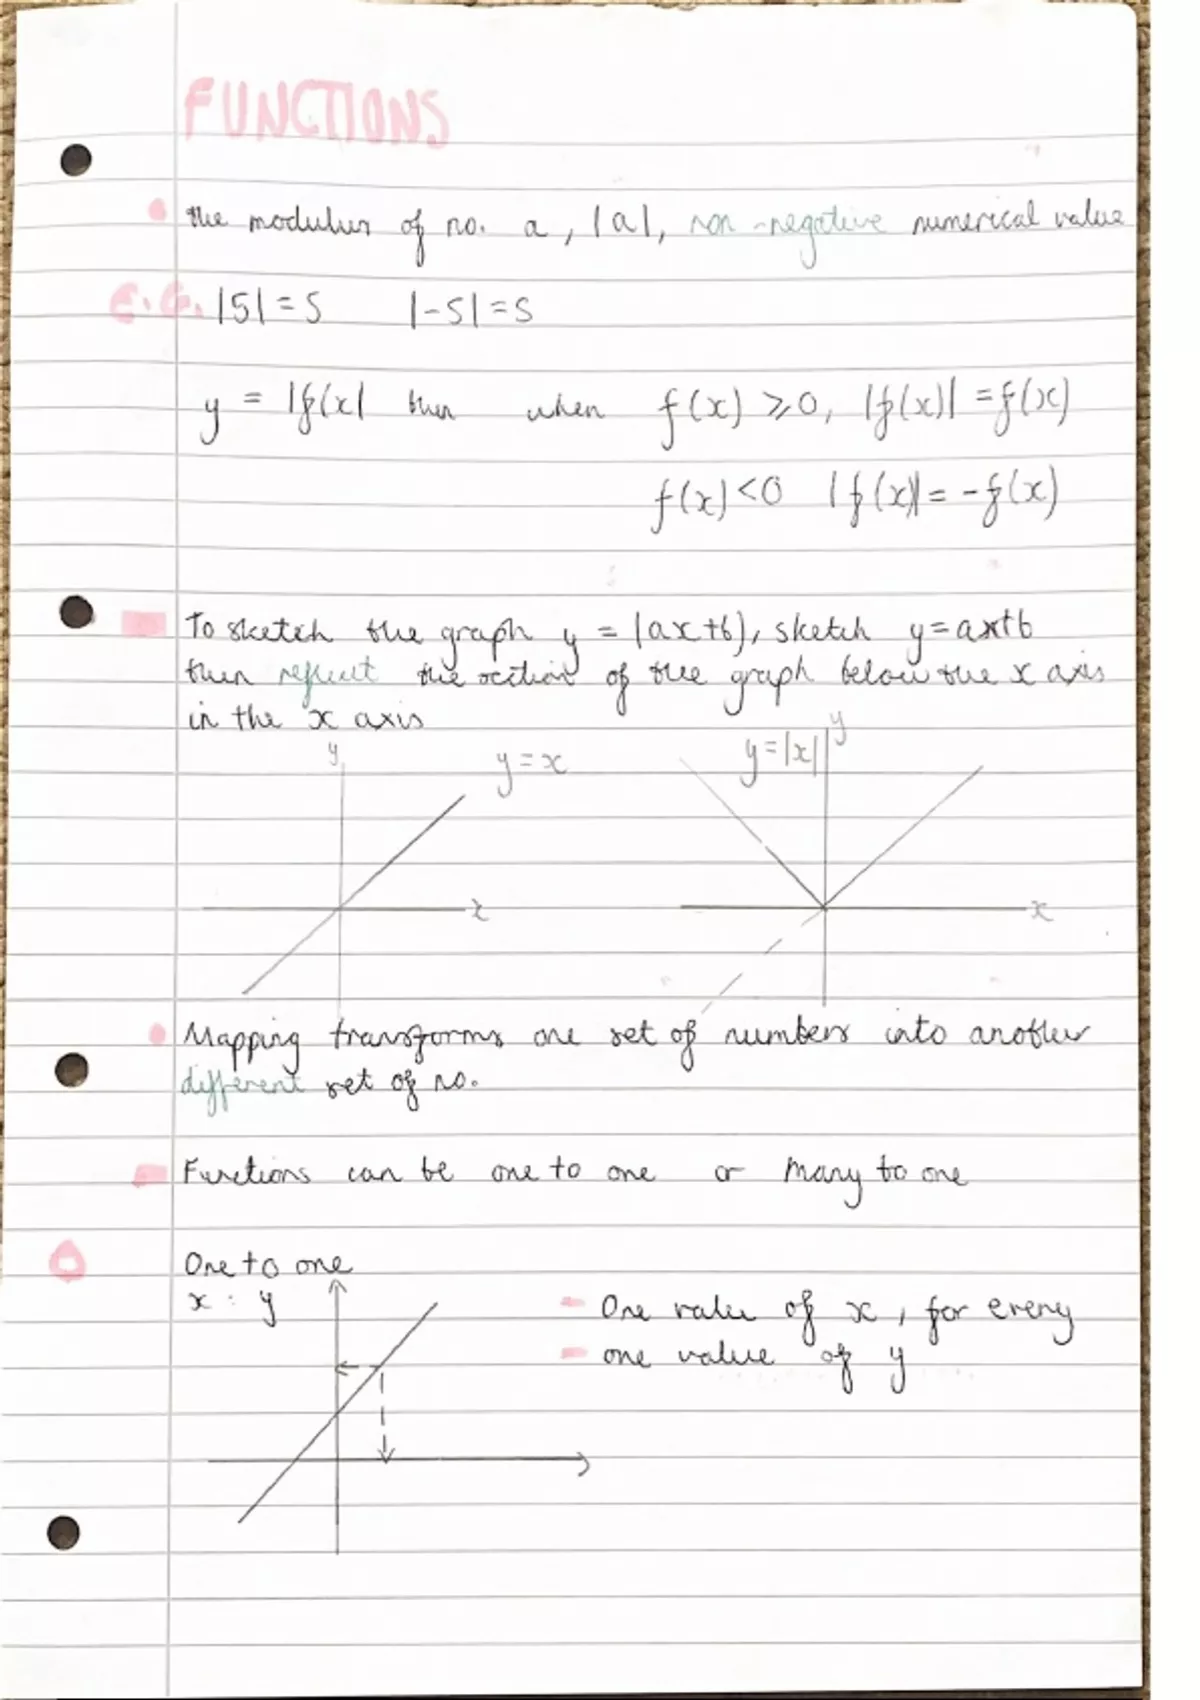 FUNCTIONS
the modulus of no. a, |a|, non-negative numerical value
E.G. |5|=5 |-5|=5
y = |f(x| then when f(x) ⩾0, |f(x)| =f(x)
f(x)<0 |f(x)|= -f(x)
To sketch the graph y = |ax+b|, sketch y=ax+b
then reflect the section of the graph below the x axis
in the x axis
y y=x y=|x| y
x x
Mapping transforms one set of numbers into another
different set of no.
Functions can be one to one or many to one
One to one
x : y
One value of x, for every
one value of y